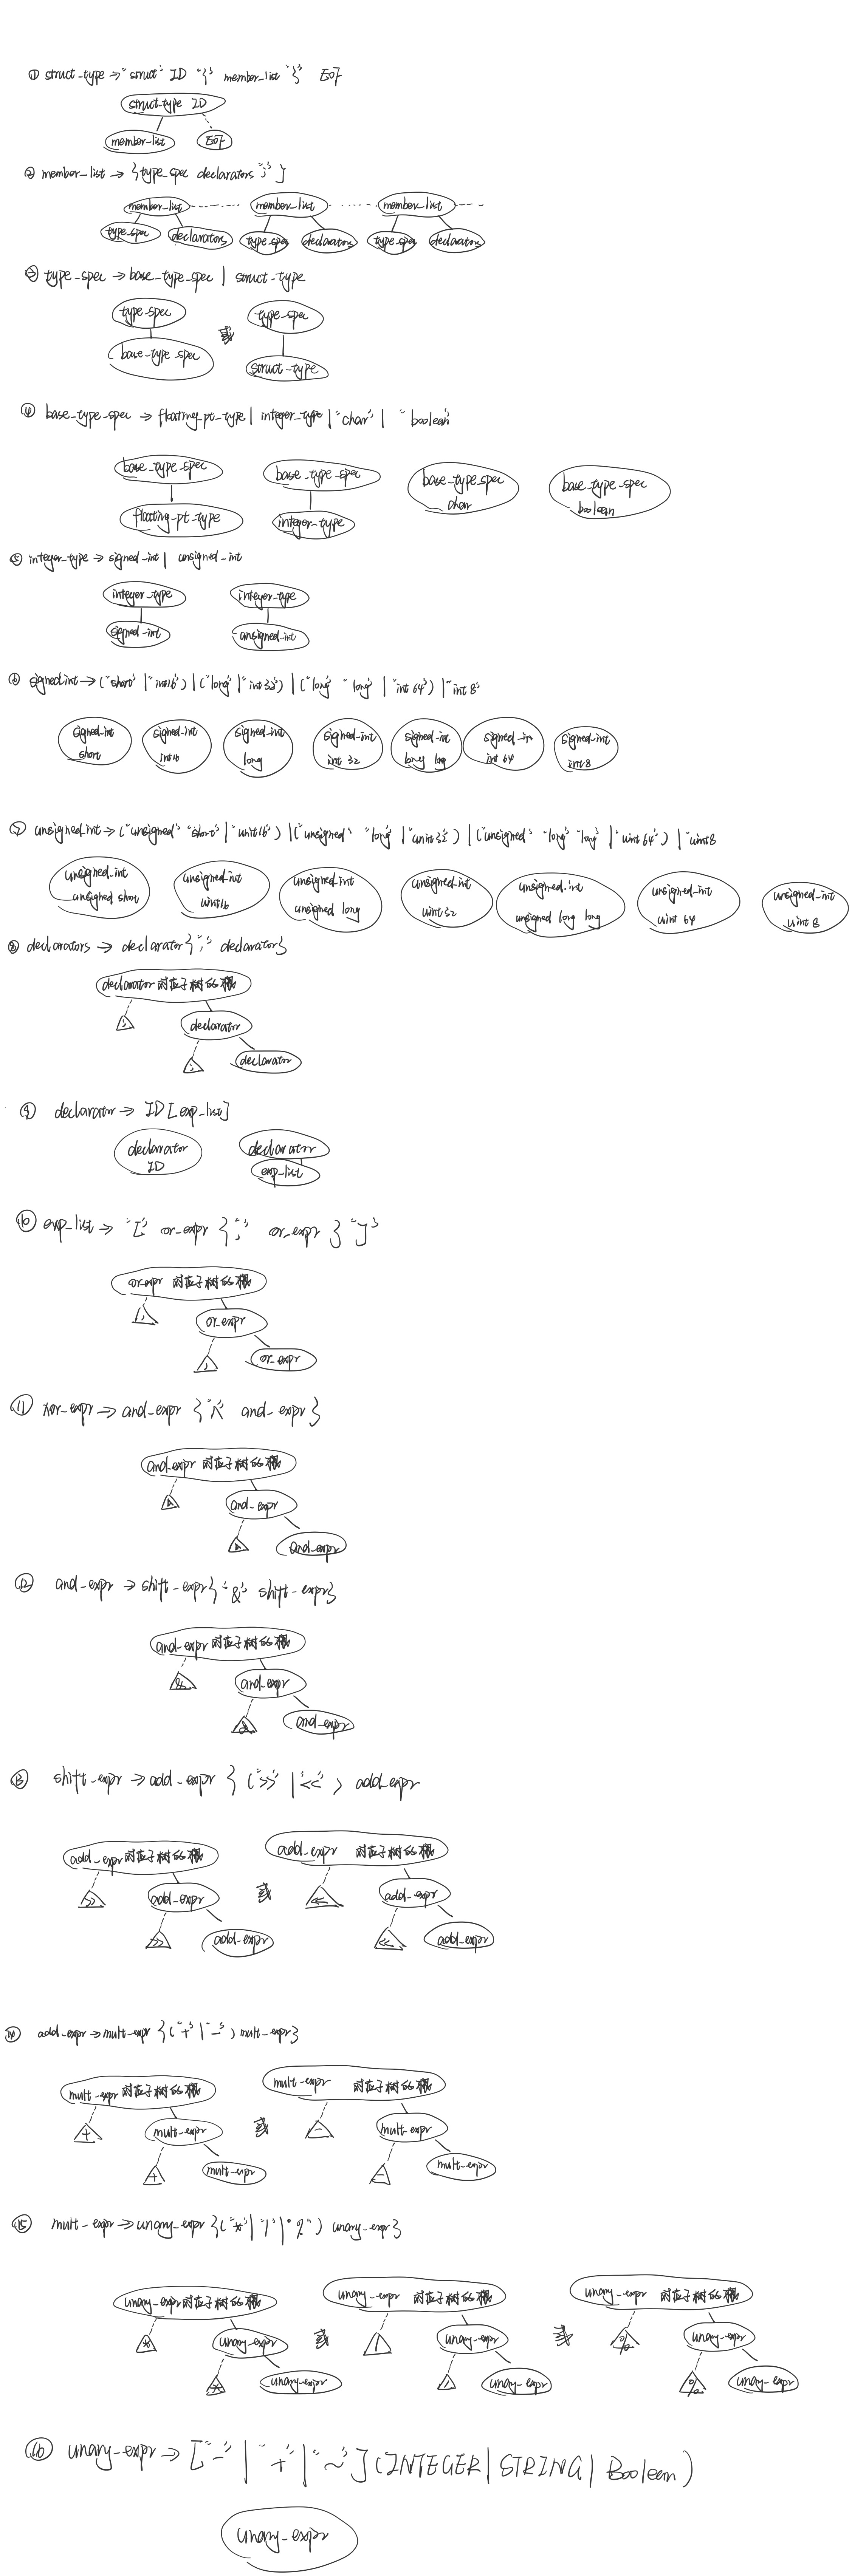 ① struct_type → "struct" ID "{" member_list "}" EOF
struct_type ID
member_list EOF
② member_list → {type_spec declarators ";"}
member_list member_list member_list
type_spec declarators type_spec declarators type_spec declarators
③ type_spec → base_type_spec | struct_type
type_spec 或 type_spec
base_type_spec struct_type
④ base_type_spec → floating_pt_type | integer_type | "char" | "boolean"
base_type_spec base_type_spec base_type_spec char base_type_spec boolean
floating_pt_type integer_type
⑤ integer_type → signed_int | unsigned_int
integer_type integer_type
signed_int unsigned_int
⑥ signed_int → ("short" | "int16") | ("long" | "int32") | ("long" "long" | "int64") | "int8"
signed_int signed_int signed_int signed_int signed_int signed_int signed_int
short int16 long int32 long long int64 int8
⑦ unsigned_int → ("unsigned" "short" | "uint16") | ("unsigned" "long" | "uint32") | ("unsigned" "long" "long" | "uint64") | "uint8
unsigned_int unsigned_int unsigned_int unsigned_int unsigned_int unsigned_int unsigned_int
unsigned short uint16 unsigned long uint32 unsigned long long uint64 uint8
⑧ declarators → declarator {"," declarator}
declarator 对应子树的根
, declarator
, declarator
⑨ declarator → ID [exp_list]
declarator declarator
ID exp_list
⑩ exp_list → "[" or_expr {"," or_expr } "]"
or_expr 对应子树的根
, or_expr
, or_expr
⑪ xor_expr → and_expr {"^" and_expr }
and_expr 对应子树的根
^ and_expr
^ and_expr
⑫ and_expr → shift_expr {"&" shift_expr}
and_expr 对应子树的根
& and_expr
& and_expr
⑬ shift_expr → add_expr { (">>" | "<<" ) add_expr
add_expr 对应子树的根 或 add_expr 对应子树的根
>> add_expr << add_expr
>> add_expr << add_expr
⑭ add_expr → mult_expr {("+" | "-") mult_expr}
mult_expr 对应子树的根 或 mult_expr 对应子树的根
+ mult_expr - mult_expr
+ mult_expr - mult_expr
⑮ mult_expr → unary_expr {("*" | "/" | "%") unary_expr}
unary_expr 对应子树的根 或 unary_expr 对应子树的根 或 unary_expr 对应子树的根
* unary_expr / unary_expr % unary_expr
* unary_expr / unary_expr % unary_expr
⑯ unary_expr → ["-" | "+" | "~"] (INTEGER | STRING | Boolean)
unary_expr